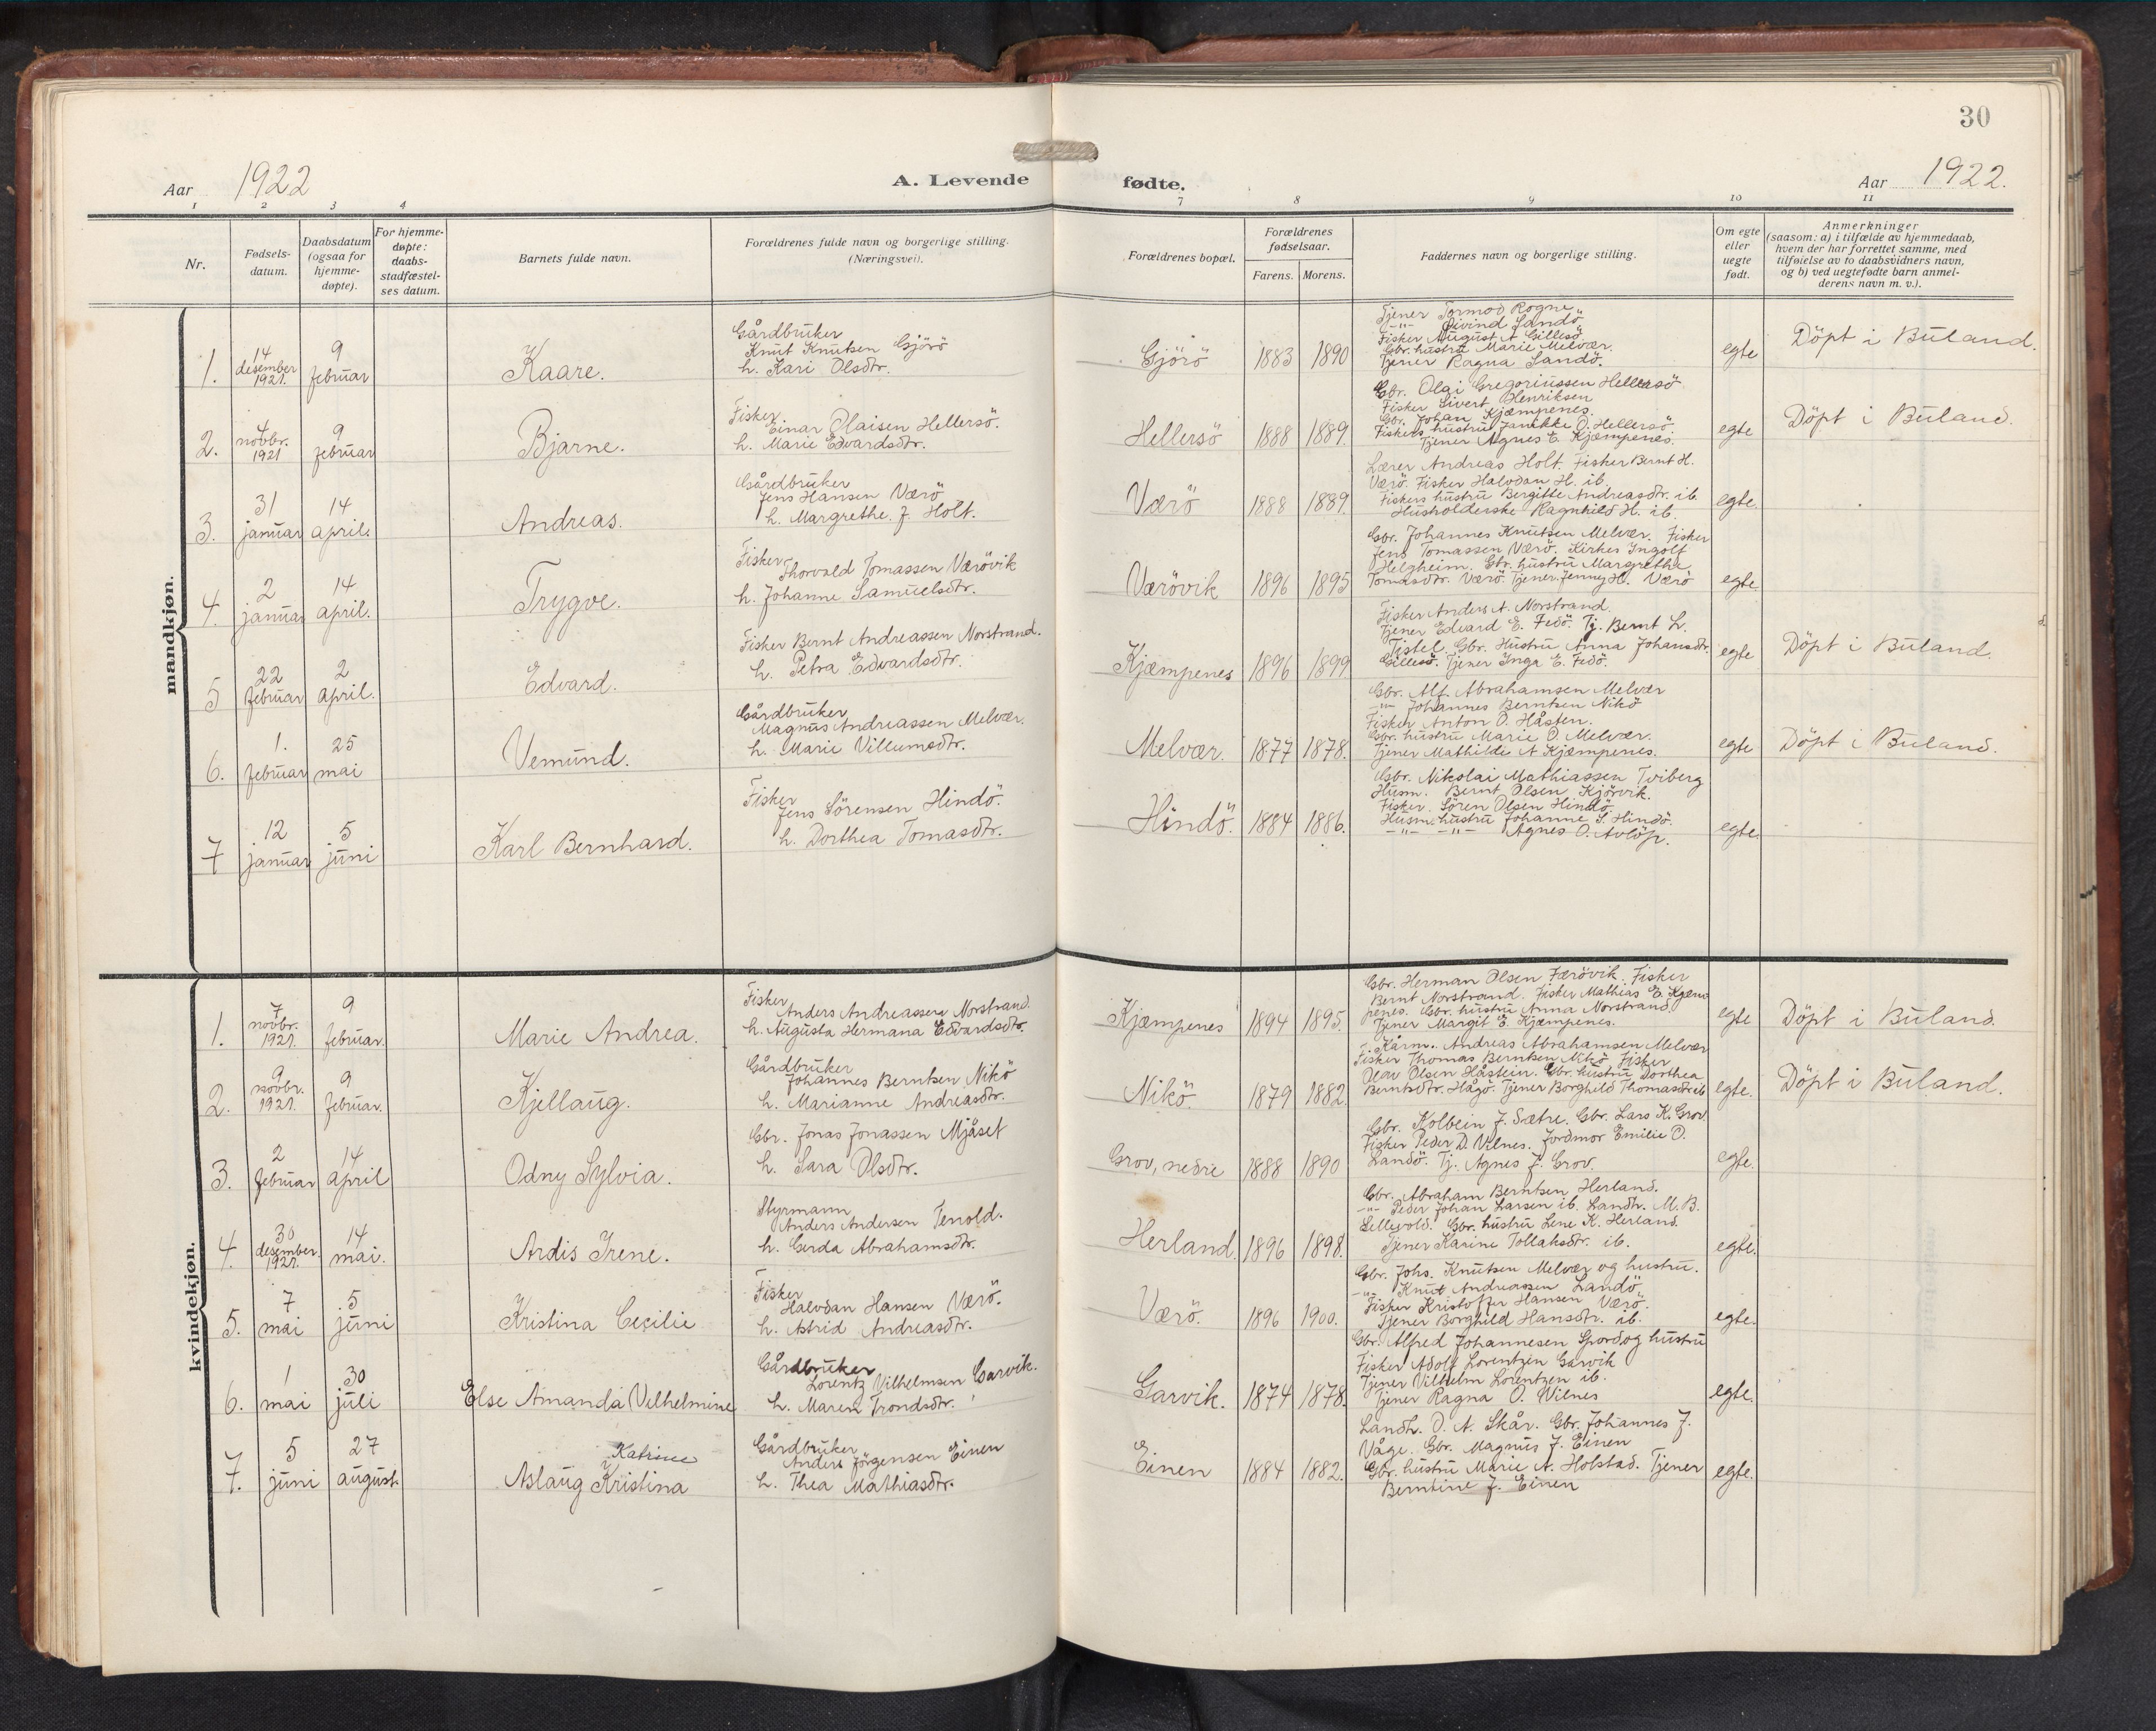 30
Aar 1922
A. Levende fødte.
Aar 1922.
1 2 3 4 7 8 9 10 11
Nr.
Fødsels-
datum.
Daabsdatum
(ogsaa for
hjemme-
døpte).
For hjemme-
døpte:
daabs-
stadfæstel-
ses datum.
Barnets fulde navn.
Forældrenes fulde navn og borgerlige stilling.
(Næringsvei).
Forældrenes bopæl.
Forældrenes
fødselsaar.
Farens. Morens.
Faddernes navn og borgerlige stilling.
Om egte
eller
uegte
født.
Anmerkninger
(saasom: a) i tilfælde av hjemmedaab,
hvem der har forrettet samme, med
tilføielse av to daabsvidners navn,
og b) ved uegtefødte barn anmel-
derens navn m. v.).
mandkjøn.
1.
14
desember
1921.
9
februar
Kaare.
Gårdbruker
Knut Knutsen Gjörö
h. Kari Olsdtr.
Gjörö
1883 1890
Tjener Tormod Rogne
-"- Öivind Sandö
Fisker August A Gillesö
Gbr. hustru Marie Melvær.
Tjener Ragna Sandö.
egte
Döpt i Buland.
2.
4
novbr.
1921
9
februar
Bjarne.
Fisker
Einar Olaisen Hellersö.
h. Marie Edvardsdtr.
Hellersö
1888 1889.
Gbr. Olai Gregoriussen Hellersö
Fisker Sivert Henriksen
Gbr. Johan Kjæmpenes.
Fiskers hustru Janikke O. Hellersö.
Tjener Agnes E. Kjæmpenes.
egte
Döpt i Buland.
3.
31
januar
14
april.
Andreas.
Gårdbruker
Jens Hansen Værö
h. Margrethe J Holt.
Værö
1888 1889.
Lærer Andreas Holt. Fisker Bernt H.
Værö. Fisker Halvdan H. ib.
Fiskers hustru Bergitte Andreasdtr. ib.
Husholderske Ragnhild H. ib.
egte.
4.
2
januar
14
april.
Trygve.
Fisker
Thorvald Tomassen Værövik
h. Johanne Samuelsdtr.
Værövik
1896 1895
Gbr. Johannes Knutsen Melvær. Fisker
Jens Tomassen Værö. Kirkes Ingolf
Helgheim. Gbr. hustru Margretha
Tomasdtr. Værö. Tjener Jenny H. Værö
egte.
5
22
februar
2
april.
Edvard.
Fisker Bernt Andreassen Norstrand.
h. Petra Edvardsdtr.
Kjæmpenes
1896 1899
Fisker Anders A. Norstrand.
Tjener Edvard E. Fedö. Tj. Bernt L.
Tistel. Gbr. Hustru Anna Johansdtr.
Gillesö. Tjener Inga E. Fedö.
egte
Döpt i Buland.
6.
1.
februar
25
mai
Vemund.
Gårdbruker
Magnus Andreassen Melvær.
h. Marie Villumsdtr.
Melvær.
1877 1878.
Gbr. Alf. Abrahamsen Melvær
-"- Johannes Berntsen Nikö
Fisker Anton O. Håsten.
Gbr. hustru Marie O. Melvær.
Tjener Mathilde A Kjæmpenes.
egte
Döpt i Buland.
7
12
januar
5
juni
Karl Bernhard.
Fisker
Jens Sörensen Hindö.
h. Dorthea Tomasdtr.
Hindö.
1884 1886.
Gbr. Nikolai Mathiassen Tviberg
Husm. Bernt Olsen Kjörvik.
Fisker. Sören Olsen Hindö.
Husm. hustru Johanne S. Hindö.
-"- -"- Agnes O. Avlöp.
egte.
kvindekjøn.
1.
7
novbr.
1921.
9
februar.
Marie Andrea.
Fisker
Anders Andreassen Norstrand.
h. Augusta Hermana Edvardsdtr.
Kjæmpenes
1894 1895.
Gbr. Herman Olsen Færövik. Fisker
Bernt Norstrand. Fisker Mathias E. Kjæm
penes. Gbr. hustru Anna Norstrand.
Tjener Margit E. Kjæmpenes.
egte
Döpt i Buland.
2.
9
novbr.
1921.
9
februar.
Kjellaug.
Gårdbruker
Johannes Berntsen Nikö
h. Marianne Andreasdtr.
Nikö.
1879 1882
Kårm. Andreas Abrahamsen Melvær
Fisker Thomas Berntsen Nikö Fisker
Olav Olsen Håstein. Gbr. hustru Dorthea
Berntsdtr. Hågö. Tjener Borghild Thomasdtr ib
egte.
Döpt i Buland.
3.
2
februar
14
april
Odny Sylvia.
Gbr. Jonas Jonassen Mjåset
h. Sara Olsdtr.
Grov, nedre
1888 1890
Gbr. Kolbein J. Sætre. Gbr. Lars K. Grov.
Fisker Peder D. Vilnes. Jordmor Emilie O.
Landö. Tj. Agnes J. Grov.
egte.
4.
30
desember
1921.
14
mai.
Ardis Irene.
Styrmann
Anders Andersen Tenold.
h. Gerda Abrahamsdtr.
Herland.
1896 1898.
Gbr. Abraham Berntsen Herland.
-"- Peder Johan Larsen ib. Landh. M. B.
Lillevold. Gbr. hustru Lene K. Herland.
Tjener Karine Tollaksdtr. ib.
egte.
5.
7
mai
5
juni
Kristina Cecilie
Fisker
Halvdan Hansen Værö.
h. Astrid Andreasdtr.
Værö.
1896 1900.
Gbr. Johs. Knutsen Melvær og hustru.
-"- Knut Andreassen Landö
Fisker Kristoffer Hansen Værö.
Tjener Borghild Hansdtr. ib.
egte.
6.
1
mai
30
juli
Else Amanda Vilhelmine
Gårdbruker
Lorentz Vilhelmsen Garvik.
h. Maren Trondsdtr.
Garvik.
1874 1878.
Gbr. Alfred Johannesen Spord og hustru
Fisker Adolf Lorentzen Garvik
Tjener Vilhelm Lorentzen ib.
Tjener Ragna O. Vilnes
egte.
7.
5
juni
27
august.
Katrine
Aslaug Kristina
Gårdbruker
Anders Jörgensen Einen
h. Thea Mathiasdtr.
Einen
1884 1882.
Landh. O. A. Skår. Gbr. Johannes J.
Våge. Gbr. Magnus J. Einen
Gbr. hustru Marie A. Holstad. Tjener
Berntine J. Einen
egte.